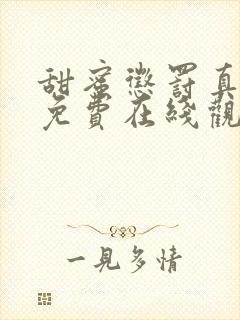 甜蜜懲罰真
免費在綫觀
一見多情